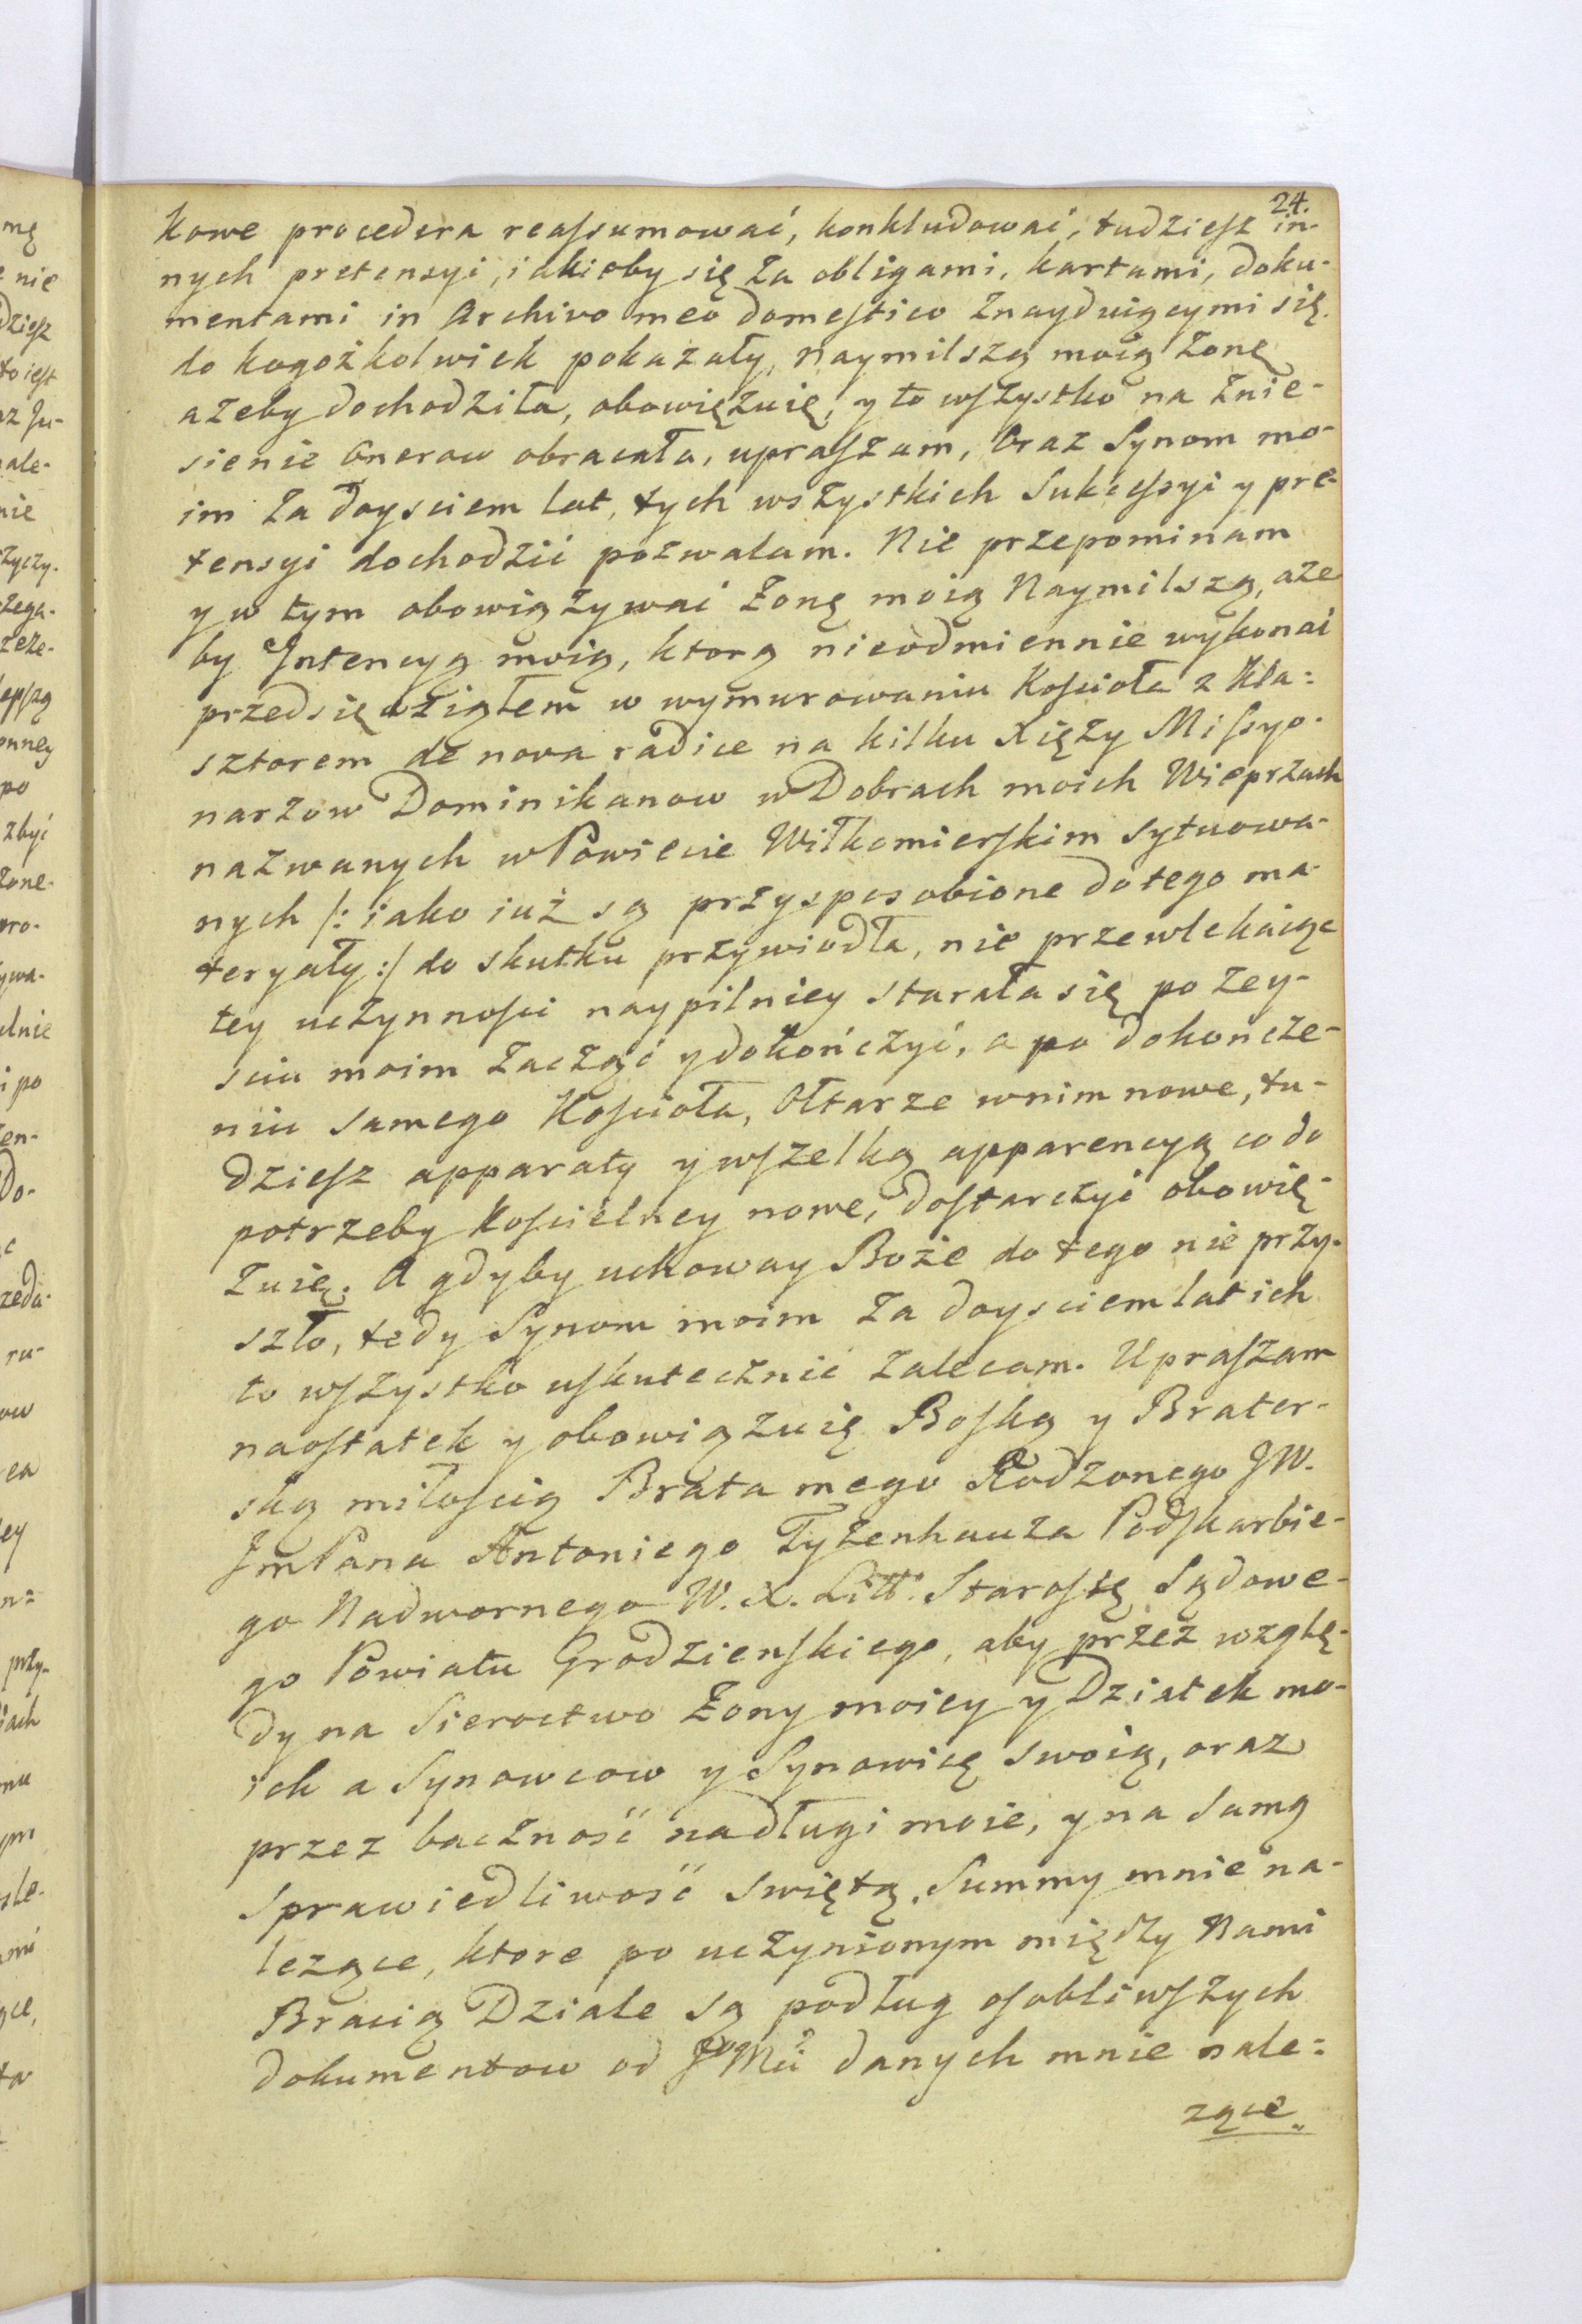 24.
kowe procedera reaſsumować, konkludować, tudzieſz in-
nych pretensyi, iakieby się za obligami, kartami, doku-
mentami in Archivo meo domeſtico znayduiącymi się
do kogożkolwiek pokazały, naymilszą moią Zonę
azeby dochodziła, obowięzuię, y to wſzystko na znie-
sienie Onerow obracała, upraſzam, Oraz Synom mo-
im za doysciem lat, tych wszystkich Sukceſsyi y pre-
tensyi dochodzić pozwalam. Nie przepominam
y w tym obowiązywać Zonę moią Naymilszą, aze
by Intencyą moią, ktorą nieodmiennie wykonać
przedsięwziąłem w wymurowaniu Koſcioła z Kla-
sztorem de nova radice na kilku Xięży Miſsyo-
narzow Dominikanow w Dobrach moich Wieprzach
nazwanych w Powiecie Wiłkomierſkim sytuowa-
nych /: iako iuż są przysposobione do tego ma-
teryały :/ do skutku przywiodła, nie przewlekaiąc
tey uczynnoſci naypilniey starała się po zey-
sciu moim zacząć y dokończyć, a po dokończe-
niu samego Koſcioła, Ołtarze w nim nowe, tu-
dzieſz apparaty y wſzelką apparencyą co do
potrzeby Koſcielney nowe, doſtarczyć obowię-
zuię. A gdyby uchoway Boże do tego nie przy-
szło, tedy Synom moim za doysciem lat ich
to wſzystko uſkutecznić zalecam. Upraſzam
naoſtatek y obowiązuię Boſką y Brater-
ską miłoſcią Brata mego Rodzonego JW.
Jm Pana Antoniego Tyzenhauza Podſkarbie-
go Nadwornego W. X. Litt. Staroſtę Sądowe-
go Powiatu Grodzienſkiego, aby przez wzglę-
dy na Sieroctwo Zony moiey y Dziatek mo-
ich a Synowcow y Synowicę swoią, oraz
przez baczność na długi moie, y na samą
Sprawiedliwość Swiętą, Summy mnie na-
lezące, ktore po uczynionym między Nami
Bracią Dziale są podług oſobliwſzych
dokumentow od Jego Mci danych mnie nale-
zące